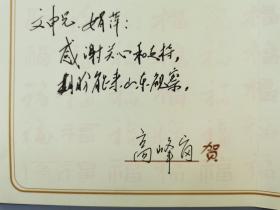 文中兄、娟萍：
感谢关心和支持，
期盼能来山东观察。
高峰
贺